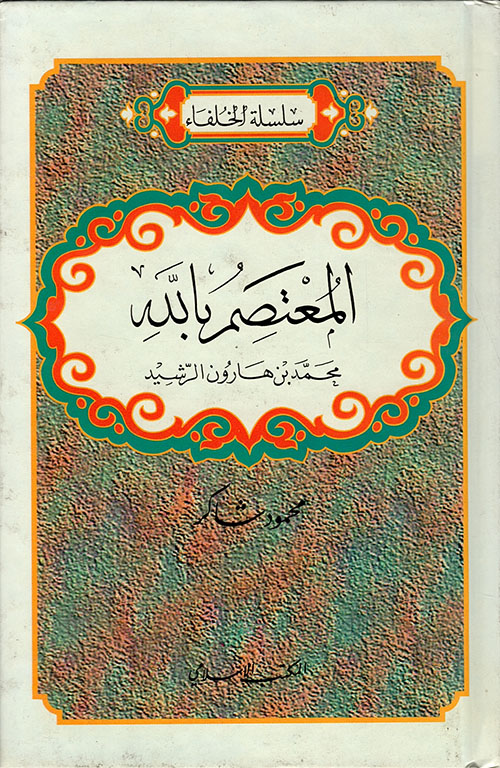 سلسلة الخلفاء
المُعْتَصِمُ بِاللهِ
محمَّد بن هارُون الرّشِيد
محمود شاكر
المكتب الإسلامي